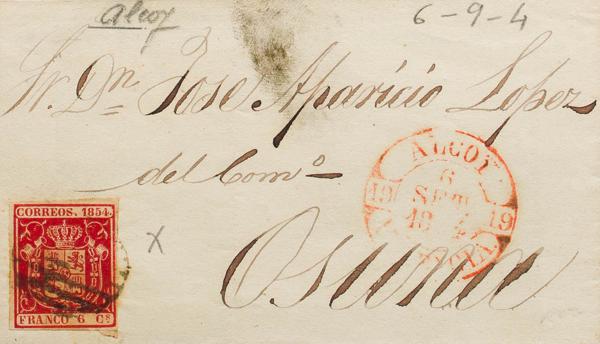 Alcoy
6-9-4
Sr. Dn. Jose Aparicio Lopez
del Comº
Osuna
ALCOY
19 19
6
SET
18
CORREOS. 1854.
FRANCO 6 Cs